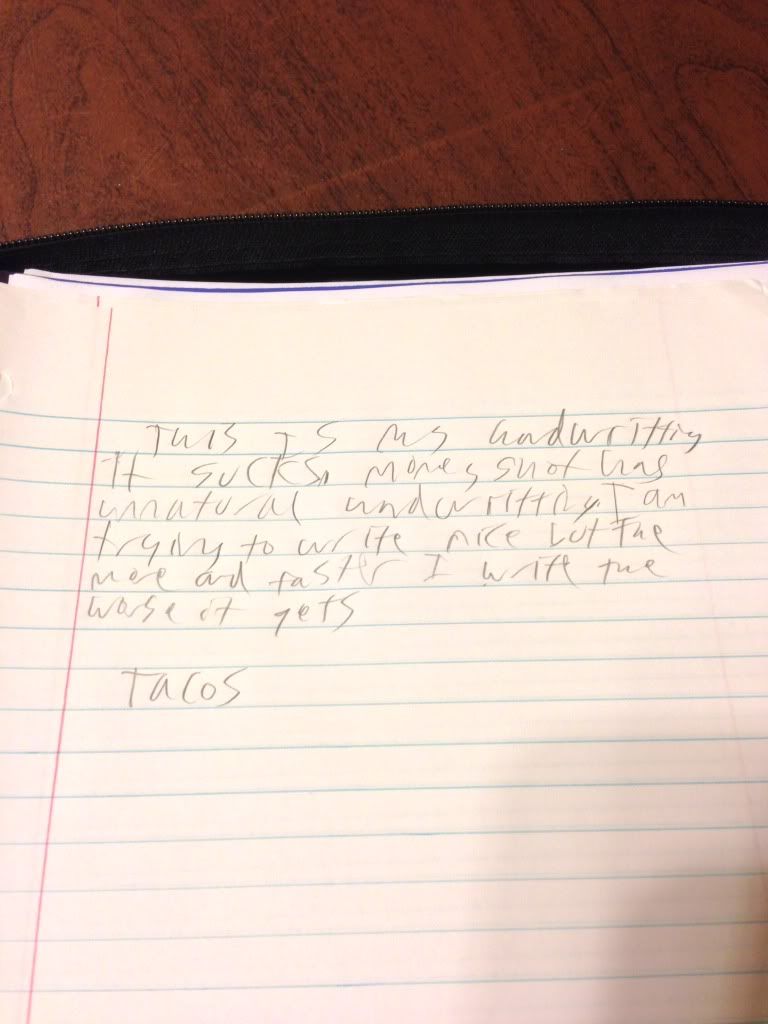 This is my handwritting
It sucks. moneyshot has
unnatural handwritting. I am
trying to write nice but the
more and faster I write the
worse it gets
Tacos